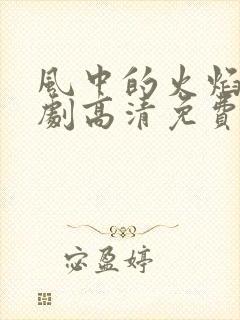 風中的火焰
劇高清免費
宓盈婷